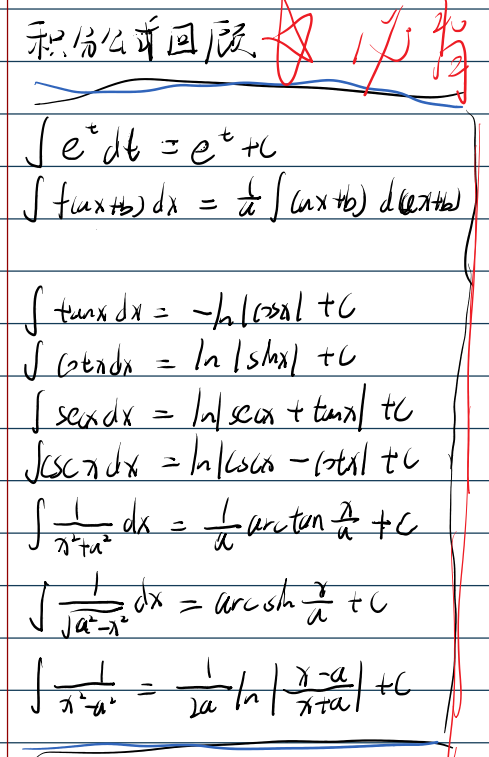 积分公式回顾 必背
∫ e^t dt = e^t + C
∫ f(ax+b) dx = 1/a ∫ (ax+b) d(ax+b)
∫ tanx dx = -ln|cosx| + C
∫ cotx dx = ln|sinx| + C
∫ secx dx = ln|secx + tanx| + C
∫ cscx dx = ln|cscx - cotx| + C
∫ 1/(x²+a²) dx = 1/a arctan x/a + C
∫ 1/√(a²-x²) dx = arcsin x/a + C
∫ 1/(x²-a²) = 1/2a ln|(x-a)/(x+a)| + C